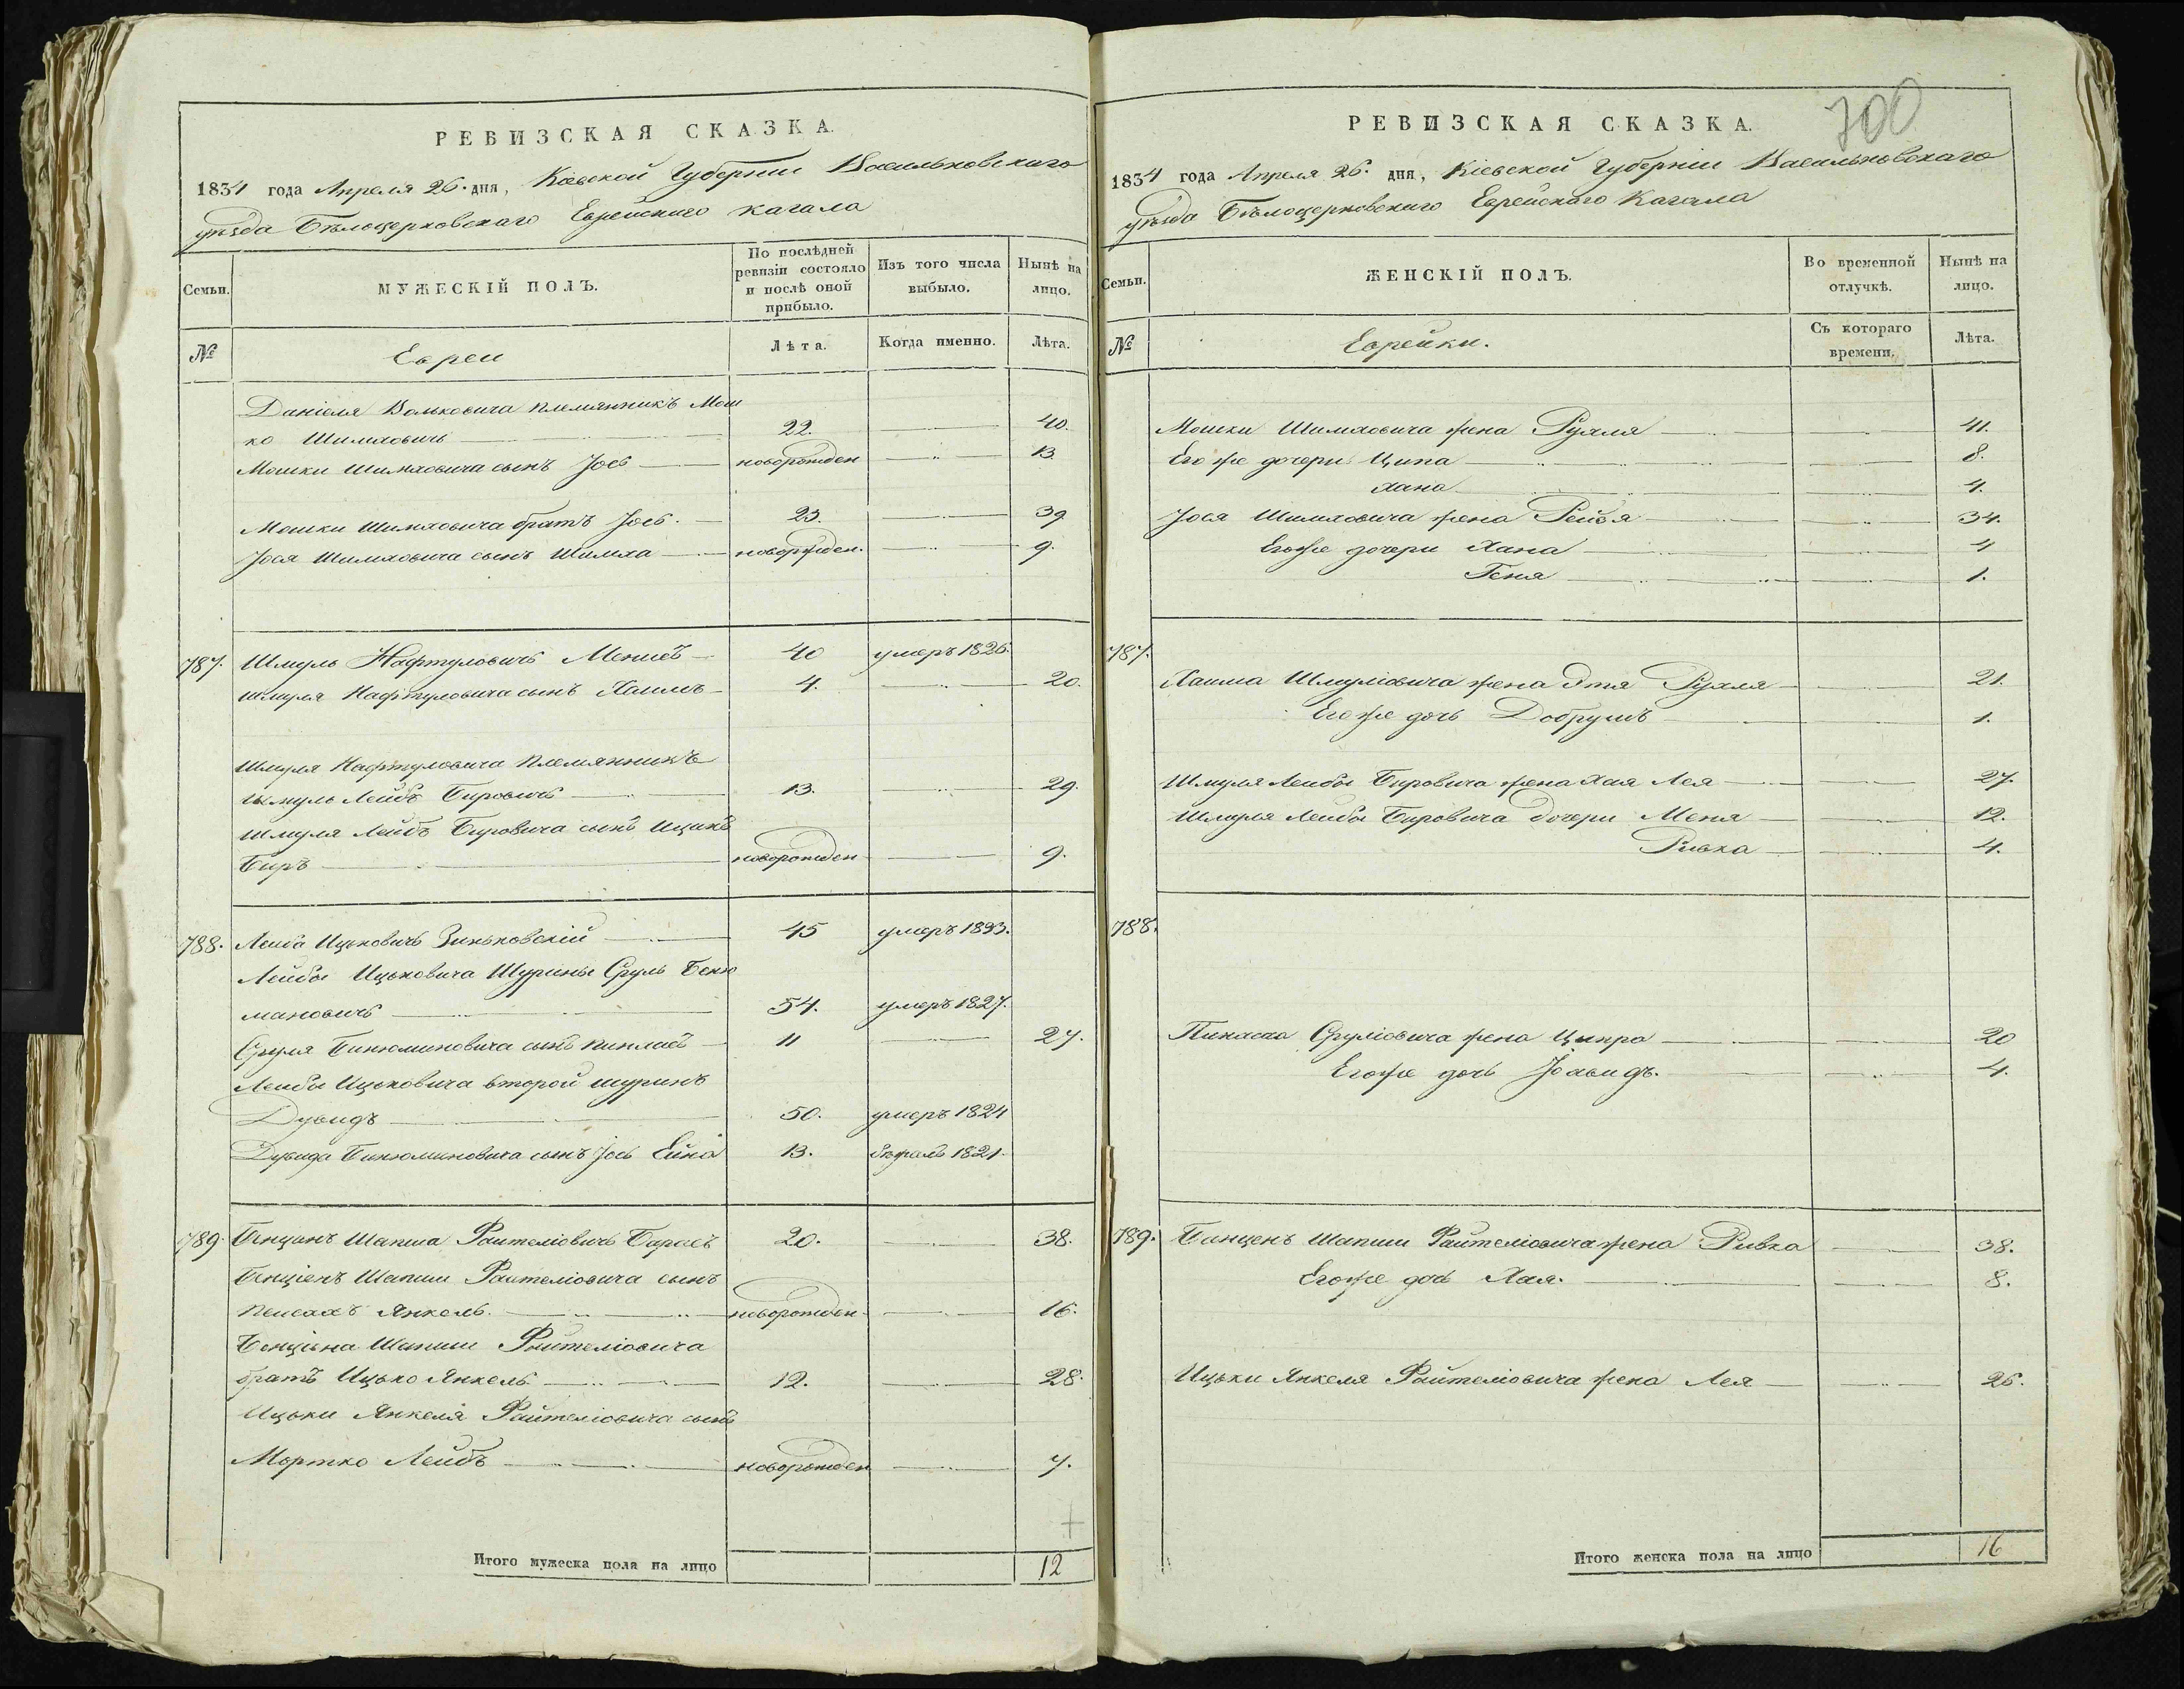 РЕВИЗСКАЯ СКАЗКА.
1834 года Апреля 26. дня, Кіевской Губерніи Васильковскаго
уѣзда Бѣлоцерковскаго Еврейского кагала
Семьи.
МУЖЕСКІЙ ПОЛЪ.
По послѣдней ревизіи состояло и послѣ оной прибыло.
Изъ того числа выбыло.
Нынѣ на лицо.
№
Евреи
Лѣта.
Когда именно.
Лѣта.
Даніеля Вольковича племянникъ Мош
ко Шимховичъ 22. 40.
Мошки Шимховича сынъ Іось новорожден 13.
Мошки Шимховича братъ Іось. 23. 39.
Іося Шимховича сынъ Шимха новорожден. 9.
787. Шмуль Нафтуловичъ 40 умеръ 1826.
Шмуля Нафтуловича сынъ Хаимъ 4. 20.
Шмуля Нафтуловича племянникъ
Шмуль Лейбъ Бировичъ 13. 29.
Шмуля Лейбъ Бировича сынъ Ицикъ
Биръ новорожден 9.
788. Лейба Ицковичъ Зиньковскій 45 умеръ 1833.
Лейбы Ицьковича Шурины Сруль Беню
миновичъ 54. умеръ 1827.
Сруля Бинюминовича сынъ 11 27.
Лейбы Ицьковича второй шуринъ
Дувидъ 50. умеръ 1824
Дувида Бинюминовича сынъ Іось 13. бѣжалъ 1821.
789. Бенционъ Шапша Файтеліовичъ 20. 38.
Бенціенъ Шапши Файтеліовича сынъ
Пейсахъ Янкель. новорожден. 16.
Бенціена Шапши Файтеліовича
братъ Ицько Янкель 12. 28.
Ицьки Янкеля Файтеліовича сынъ
Мортко Лейбъ новорожден 7.
Итого мужеска пола на лицо 12
700
РЕВИЗСКАЯ СКАЗКА.
1834 года Апреля 26. дня, Кіевской Губерніи Васильковскаго
уѣзда Бѣлоцерковскаго Еврейскаго Кагала
Семьи.
ЖЕНСКІЙ ПОЛЪ.
Во временной отлучкѣ.
Нынѣ на лицо.
№
Еврейки.
Съ котораго времени.
Лѣта.
Мошки Шимховича жена Рухля 41.
Его же дочери Ципа 8.
Хана 4.
Іося Шимховича жена Рейзя 34.
Егоже дочери Хана 4
Геня 1.
787.
Хаима Шмуліовича жена Этя Рухля 21.
Егоже дочь Добрушъ 1.
Шмуля Лейбы Бировича жена Хая Лея 27.
Шмуля Лейбы Бировича дочери Меня 12.
Ривка 4.
788.
Пинхаса Сруліовича жена Ципра 20
Егоже дочь 4.
789. Банценъ Шапши Файтеліовича жена Ривка 38.
Егоже дочь Хая. 8.
Ицьки Янкеля Файтеліовича жена Лея 26.
Итого женска пола на лицо 16